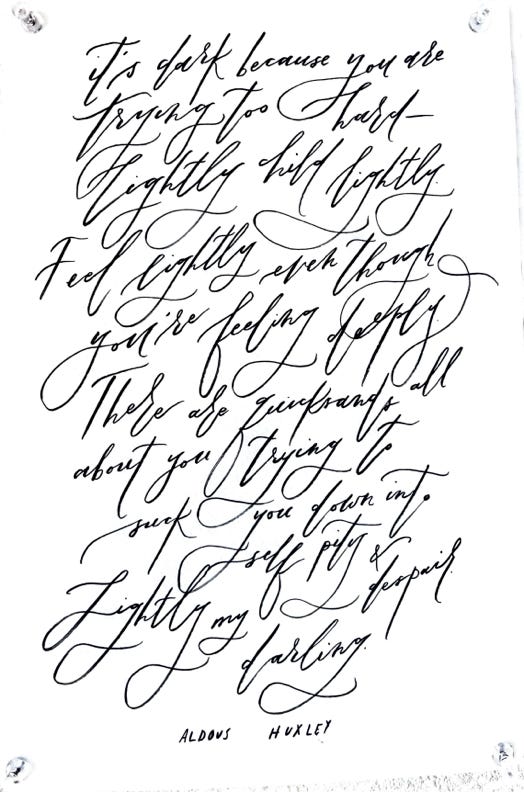 it's dark because you are
trying too hard—
Lightly child lightly.
Feel lightly even though
you're feeling deeply.
There are quicksands all
about you trying to
suck you down into
self pity &
despair.
Lightly my
darling.
ALDOUS HUXLEY